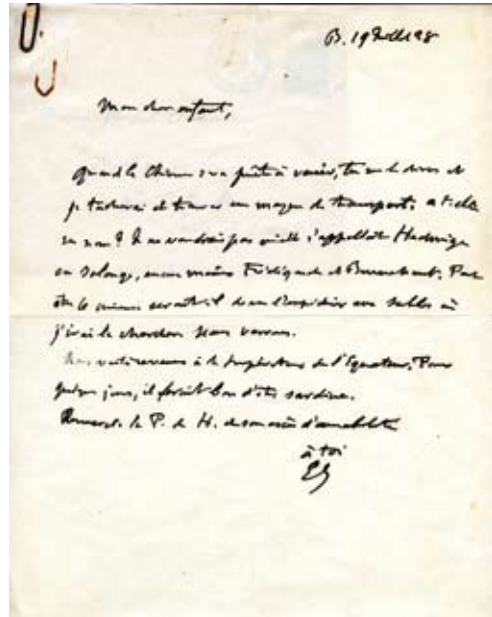 B. 19 Juillet 28
Mon cher enfant,
Quand la Chienne sera prête à venir, tu me le diras et
je tâcherai de trouver un moyen de transport. a t-elle
un nom ? Je ne voudrais pas qu'elle s'appellât Hedwige
ou Solange, encore moins Frédégonde et Brunehaut. Peut
être le mieux serait-il de l'expédier aux Sables où
j'irai la chercher. Nous verrons.
Nous voilà revenus à la température de l'Equateur. Pour
quelques jours, il ferait bon d'être sardine.
Remercie le P. de H. de son accès d'amabilité
à toi